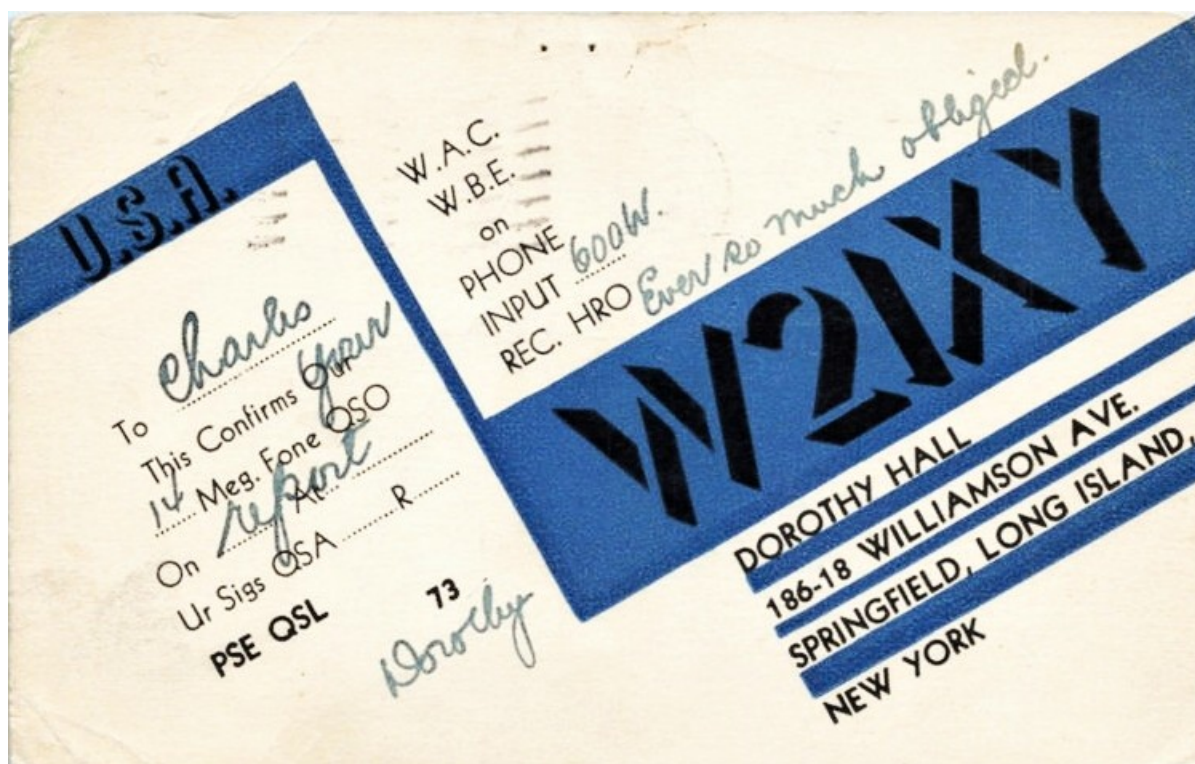 U.S.A.
To Charles
This Confirms Our your
14 Meg. Fone QSO
On report At
Ur Sigs QSA R
PSE QSL 73
Dorothy
W.A.C.
W.B.E.
on
PHONE
INPUT 600W.
REC. HRO Ever so much obliged.
W2IXY
DOROTHY HALL
186-18 WILLIAMSON AVE.
SPRINGFIELD, LONG ISLAND,
NEW YORK